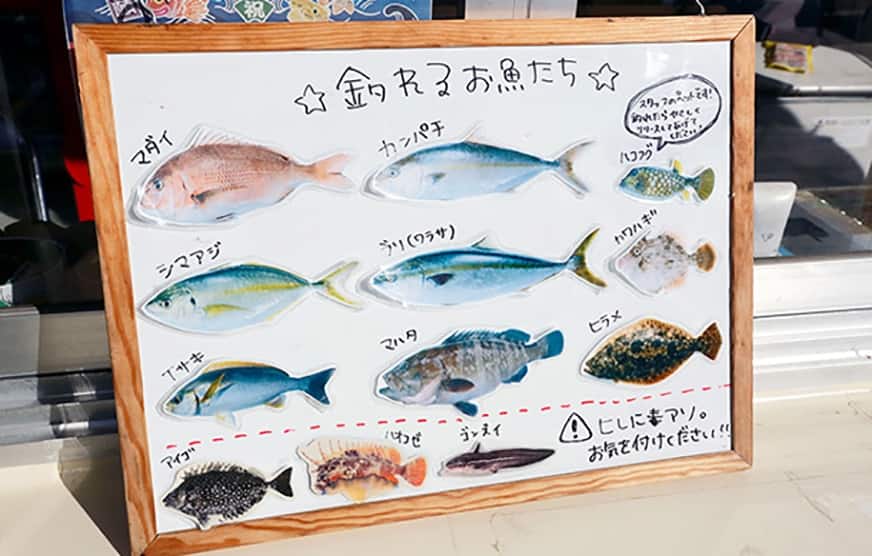 祝
☆釣れるお魚たち☆
マダイ
カンパチ
スタッフのペットです!
釣れたらやさしく
リリースしてあげて
ください。
ハコフグ
シマアジ
ブリ(ワラサ)
カワハギ
イサキ
マハタ
ヒラメ
アイゴ
ハオコゼ
ゴンズイ
⚠ヒレに毒アリ。
お気を付けください!!